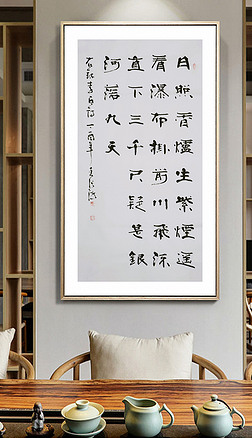 日照香爐生紫煙遥
看瀑布掛前川飛流
直下三千尺疑是銀
河落九天
丁酉年